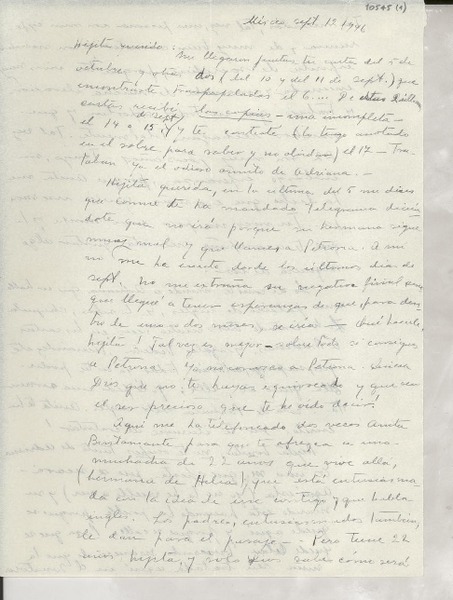 10545 (1)
Mixco, sept. 13 1946
Hijita querida: Me llegaron juntas tu carta del 5 de
octubre y otras dos (del 10 y del 11 de sept.) que
encontraste traspapeladas el 6. De estas últimas
cartas recibí dos copias - una incompleta -
el 14 o 15 (de sept.) y te contesté (lo tengo anotado
en el sobre para saber y no olvidar) el 17 - Tra-
taban ya el odioso asunto de Adriana. -
Hijita querida, en la última del 5 me dices
que Connie te ha mandado telegrama dicién-
dote que no irá porque su hermano sigue
muy mal y que llames a Petrona. A mí
no me ha escrito desde los últimos días de
sept. No me extraña su negativa final aun-
que llegué a tener esperanzas de que, para den-
tro de uno o dos meses, se iría - Qué hacerle,
hijita! Tal vez es mejor - sobre todo si consigues
a Petrona. Yo no conozco a Petrona. Quiera
Dios que no te hayas equivocado y que sea
el ser precioso que te he oído decir!
Aquí me ha telefoneado dos veces Anita
Bustamante para que te ofrezca a una
muchacha de 22 años que vive allá,
(hermana de Helia), que está entusiasma-
da con la idea de irse contigo y que habla
inglés. Los padres, entusiasmados también,
le dan para el pasaje - . Pero tiene 22
años hijita, y solo Dios sabe cómo será